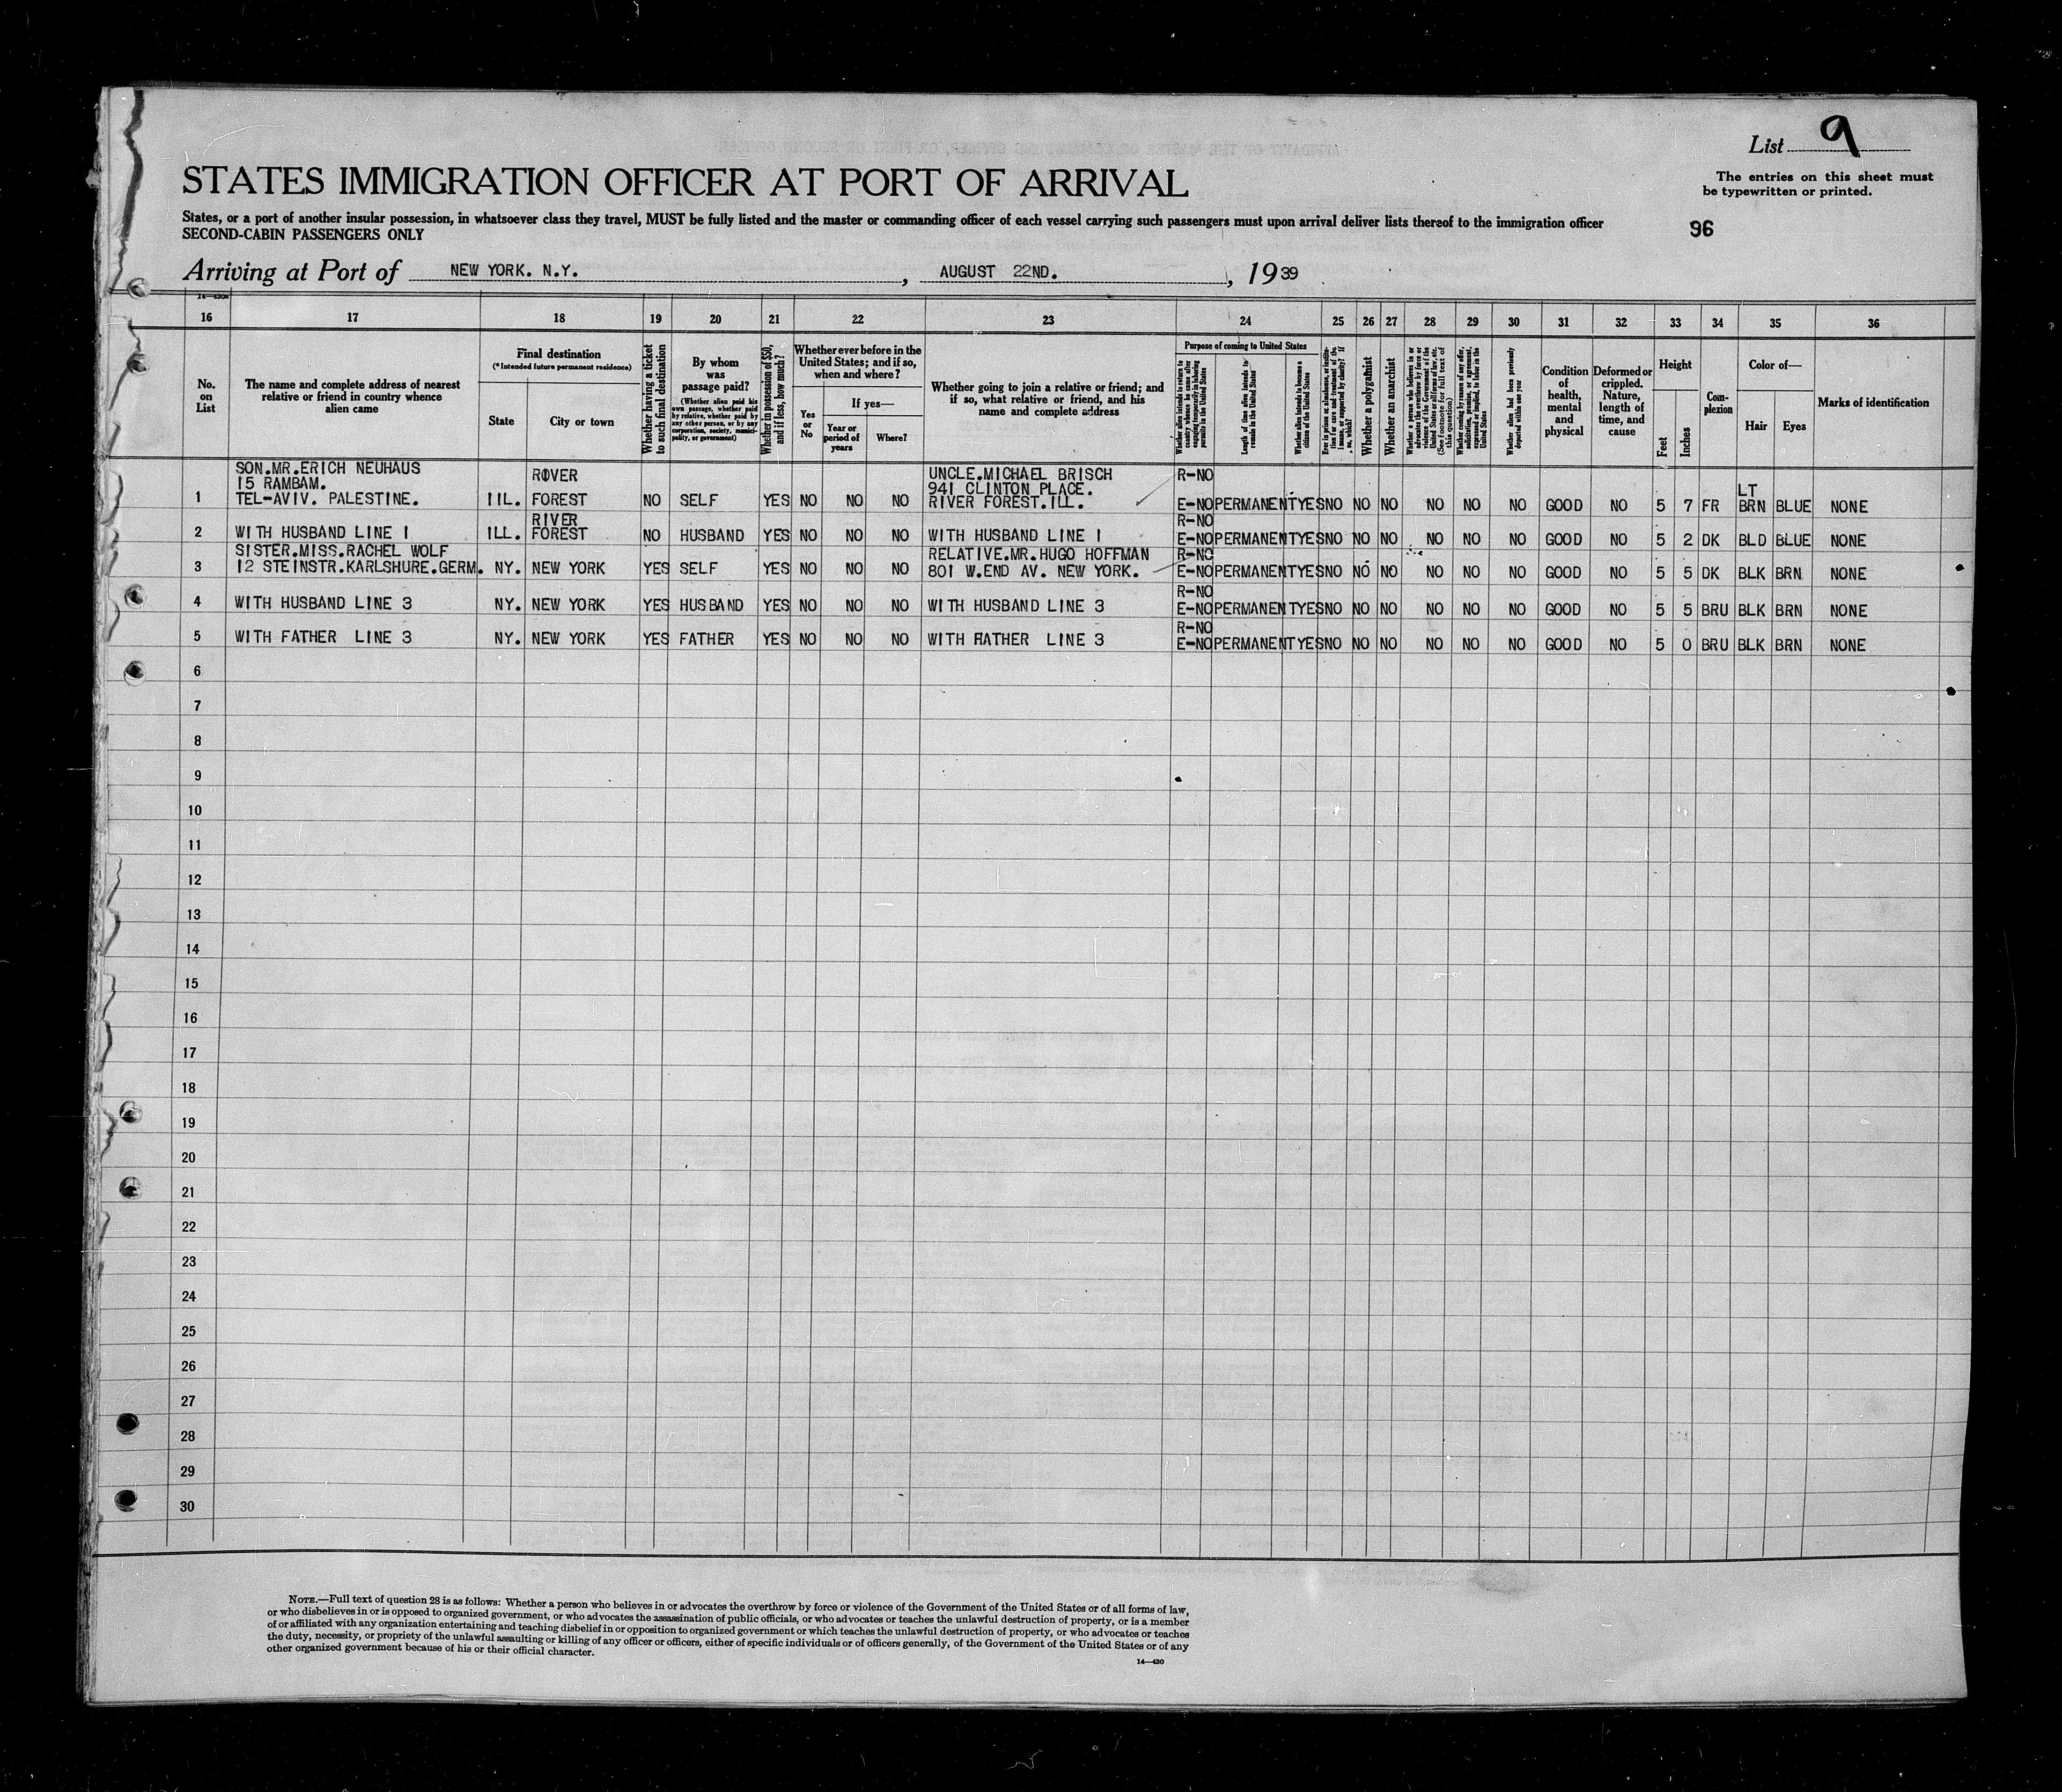 List 9
The entries on this sheet must
be typewritten or printed.
STATES IMMIGRATION OFFICER AT PORT OF ARRIVAL
States, or a port of another insular possession, in whatsoever class they travel, MUST be fully listed and the master or commanding officer of each vessel carrying such passengers must upon arrival deliver lists thereof to the immigration officer
96
SECOND-CABIN PASSENGERS ONLY
Arriving at Port of NEW YORK. N.Y. , AUGUST 22ND. , 1939
16 17 18 19 20 21 22 23 24 25 26 27 28 29 30 31 32 33 34 35 36
No.
on
List
The name and complete address of nearest
relative or friend in country whence
alien came
Final destination
(*Intended future permanent residence)
State
City or town
Whether having a ticket
to such final destination
By whom
was
passage paid?
(Whether alien paid his
own passage, whether paid
by relative, whether paid by
any other person, or by any
corporation, society, munici-
pality, or government)
Whether in possession of $50,
and if less, how much?
Whether ever before in the
United States; and if so,
when and where?
Yes
or
No
If yes—
Year or
period of
years
Where?
Whether going to join a relative or friend; and
if so, what relative or friend, and his
name and complete address
Purpose of coming to United States
Whether alien intends to return to
country whence he came after
engaging temporarily in laboring
pursuits in the United States
Length of time alien intends to
remain in the United States
Whether alien intends to become a
citizen of the United States
Ever in prison or almshouse, or institu-
tion for care and treatment of the
insane, or supported by charity? If
so, which?
Whether a polygamist
Whether an anarchist
Whether a person who believes in or
advocates the overthrow by force or
violence of the Government of the
United States or all forms of law, etc.
(See footnote for full text of
this question)
Whether coming by reason of any offer,
solicitation, promise, or agreement,
expressed or implied, to labor in the
United States
Whether alien had been previously
deported within one year
Condition
of
health,
mental
and
physical
Deformed or
crippled.
Nature,
length of
time, and
cause
Height
Feet
Inches
Com-
plexion
Color of—
Hair
Eyes
Marks of identification
SON.MR.ERICH NEUHAUS ROVER UNCLE.MICHAEL BRISCH R-NO
15 RAMBAM. 941 CLINTON PLACE. LT
1 TEL-AVIV. PALESTINE. IIL. FOREST NO SELF YES NO NO NO RIVER FOREST.ILL. E-NO PERMANENT YES NO NO NO NO NO NO GOOD NO 5 7 FR BRN BLUE NONE
RIVER R-NO
2 WITH HUSBAND LINE 1 ILL. FOREST NO HUSBAND YES NO NO NO WITH HUSBAND LINE 1 E-NO PERMANENT YES NO NO NO NO NO NO GOOD NO 5 2 DK BLD BLUE NONE
SISTER.MISS.RACHEL WOLF RELATIVE.MR.HUGO HOFFMAN R-NO
3 12 STEINSTR.KARLSHURE.GERM. NY. NEW YORK YES SELF YES NO NO NO 801 W.END AV. NEW YORK. E-NO PERMANENT YES NO NO NO NO NO NO GOOD NO 5 5 DK BLK BRN NONE
R-NO
4 WITH HUSBAND LINE 3 NY. NEW YORK YES HUSBAND YES NO NO NO WITH HUSBAND LINE 3 E-NO PERMANENT YES NO NO NO NO NO NO GOOD NO 5 5 BRU BLK BRN NONE
R-NO
5 WITH FATHER LINE 3 NY. NEW YORK YES FATHER YES NO NO NO WITH RATHER LINE 3 E-NO PERMANENT YES NO NO NO NO NO NO GOOD NO 5 0 BRU BLK BRN NONE
6
7
8
9
10
11
12
13
14
15
16
17
18
19
20
21
22
23
24
25
26
27
28
29
30
NOTE.—Full text of question 28 is as follows: Whether a person who believes in or advocates the overthrow by force or violence of the Government of the United States or of all forms of law,
or who disbelieves in or is opposed to organized government, or who advocates the assassination of public officials, or who advocates or teaches the unlawful destruction of property, or is a member
of or affiliated with any organization entertaining and teaching disbelief in or opposition to organized government or which teaches the unlawful destruction of property, or who advocates or teaches
the duty, necessity, or propriety of the unlawful assaulting or killing of any officer or officers, either of specific individuals or of officers generally, of the Government of the United States or of any
other organized government because of his or their official character.
14—430